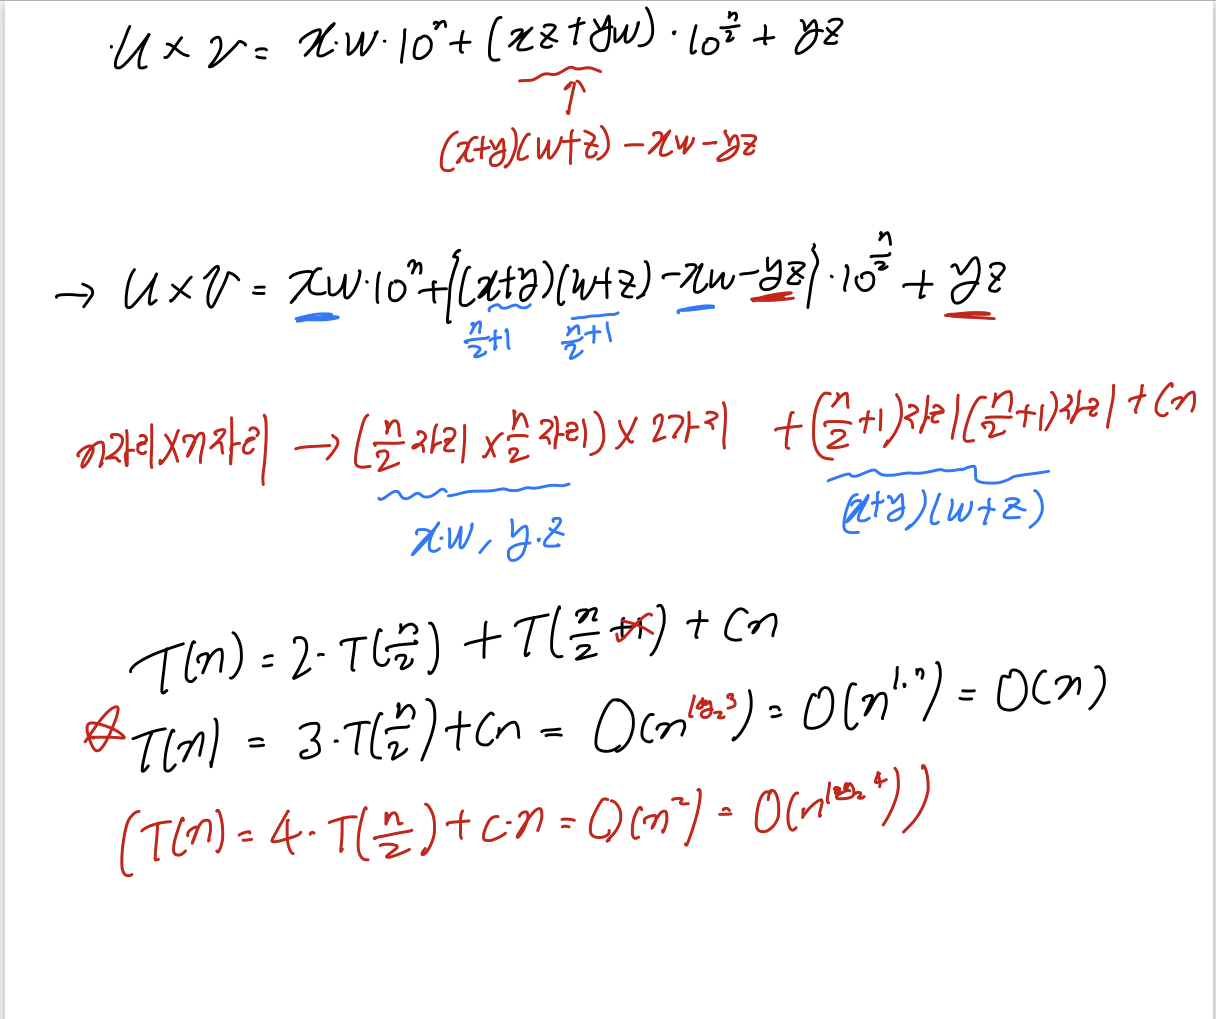 U × V = x·w·10^n + (xz+yw)·10^(n/2) + yz
↑
(x+y)(w+z) - xw - yz
→ U × V = xw·10^n + {(x+y)(w+z) - xw - yz}·10^(n/2) + yz
n/2+1 n/2+1
n자리×n자리 → (n/2 자리 × n/2 자리) × 2가지 + (n/2+1)자리(n/2+1)자리 + Cn
x·w, y·z (x+y)(w+z)
T(n) = 2·T(n/2) + T(n/2+1) + Cn
☆ T(n) = 3·T(n/2) + Cn = O(n^(log₂3)) = O(n^(1.n)) = O(n)
(T(n) = 4·T(n/2) + c·n = O(n²) = O(n^(log₂4)))